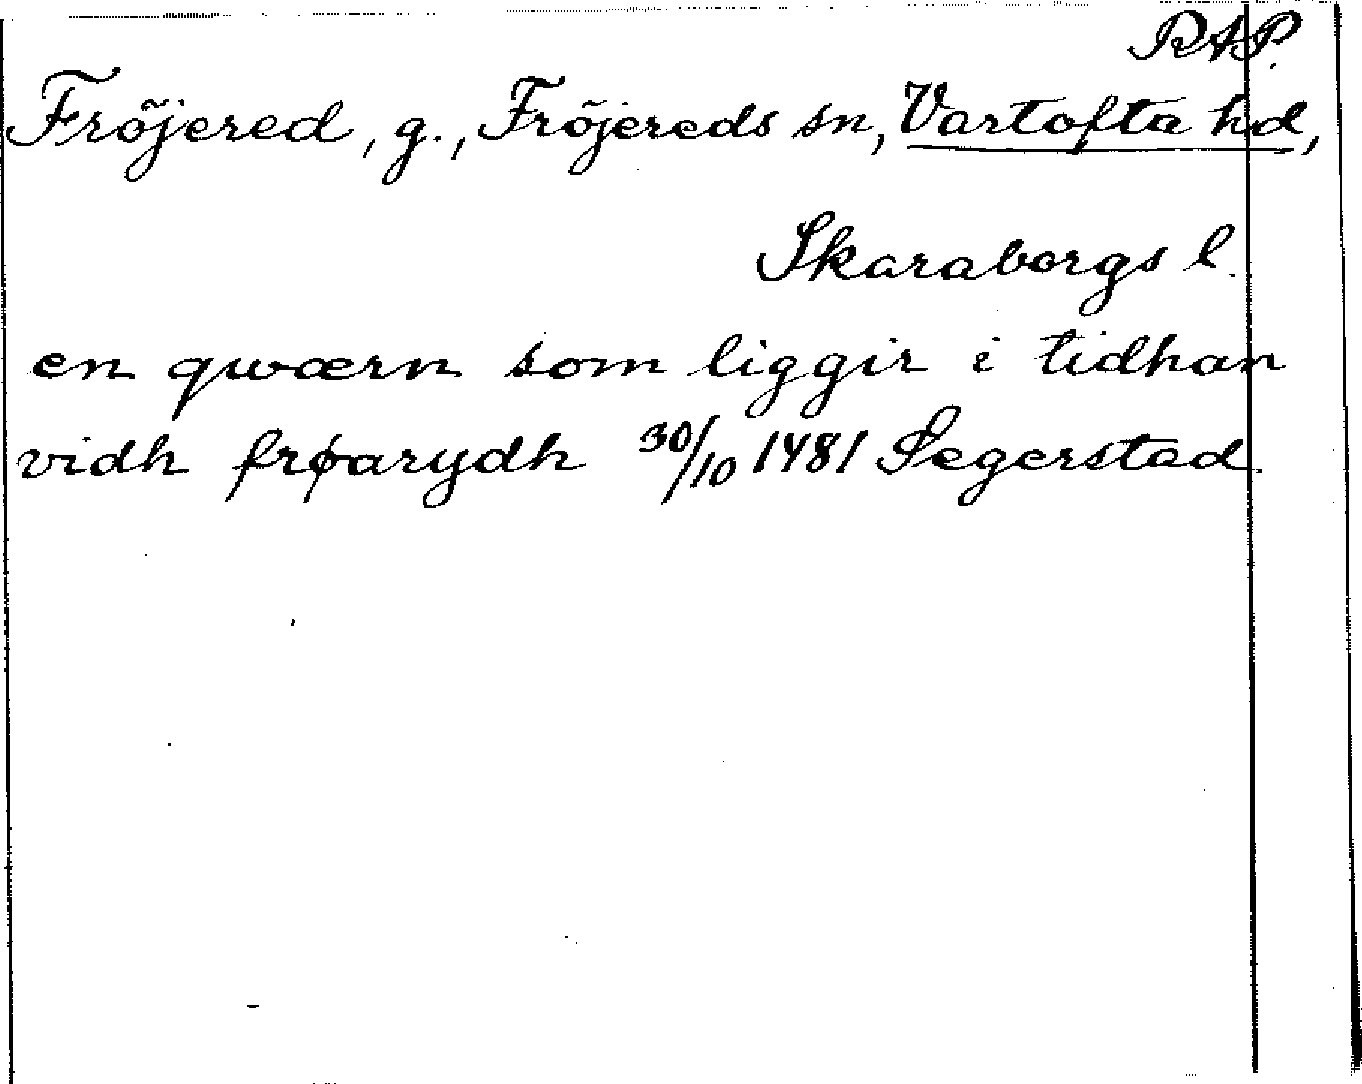 RAP.
Fröjered, g., Fröjereds sn, Vartofta hd,
Skaraborgs l.
en qwærn som liggir i tidhan
vidh frøarydh 30/10 1481 Segerstad.